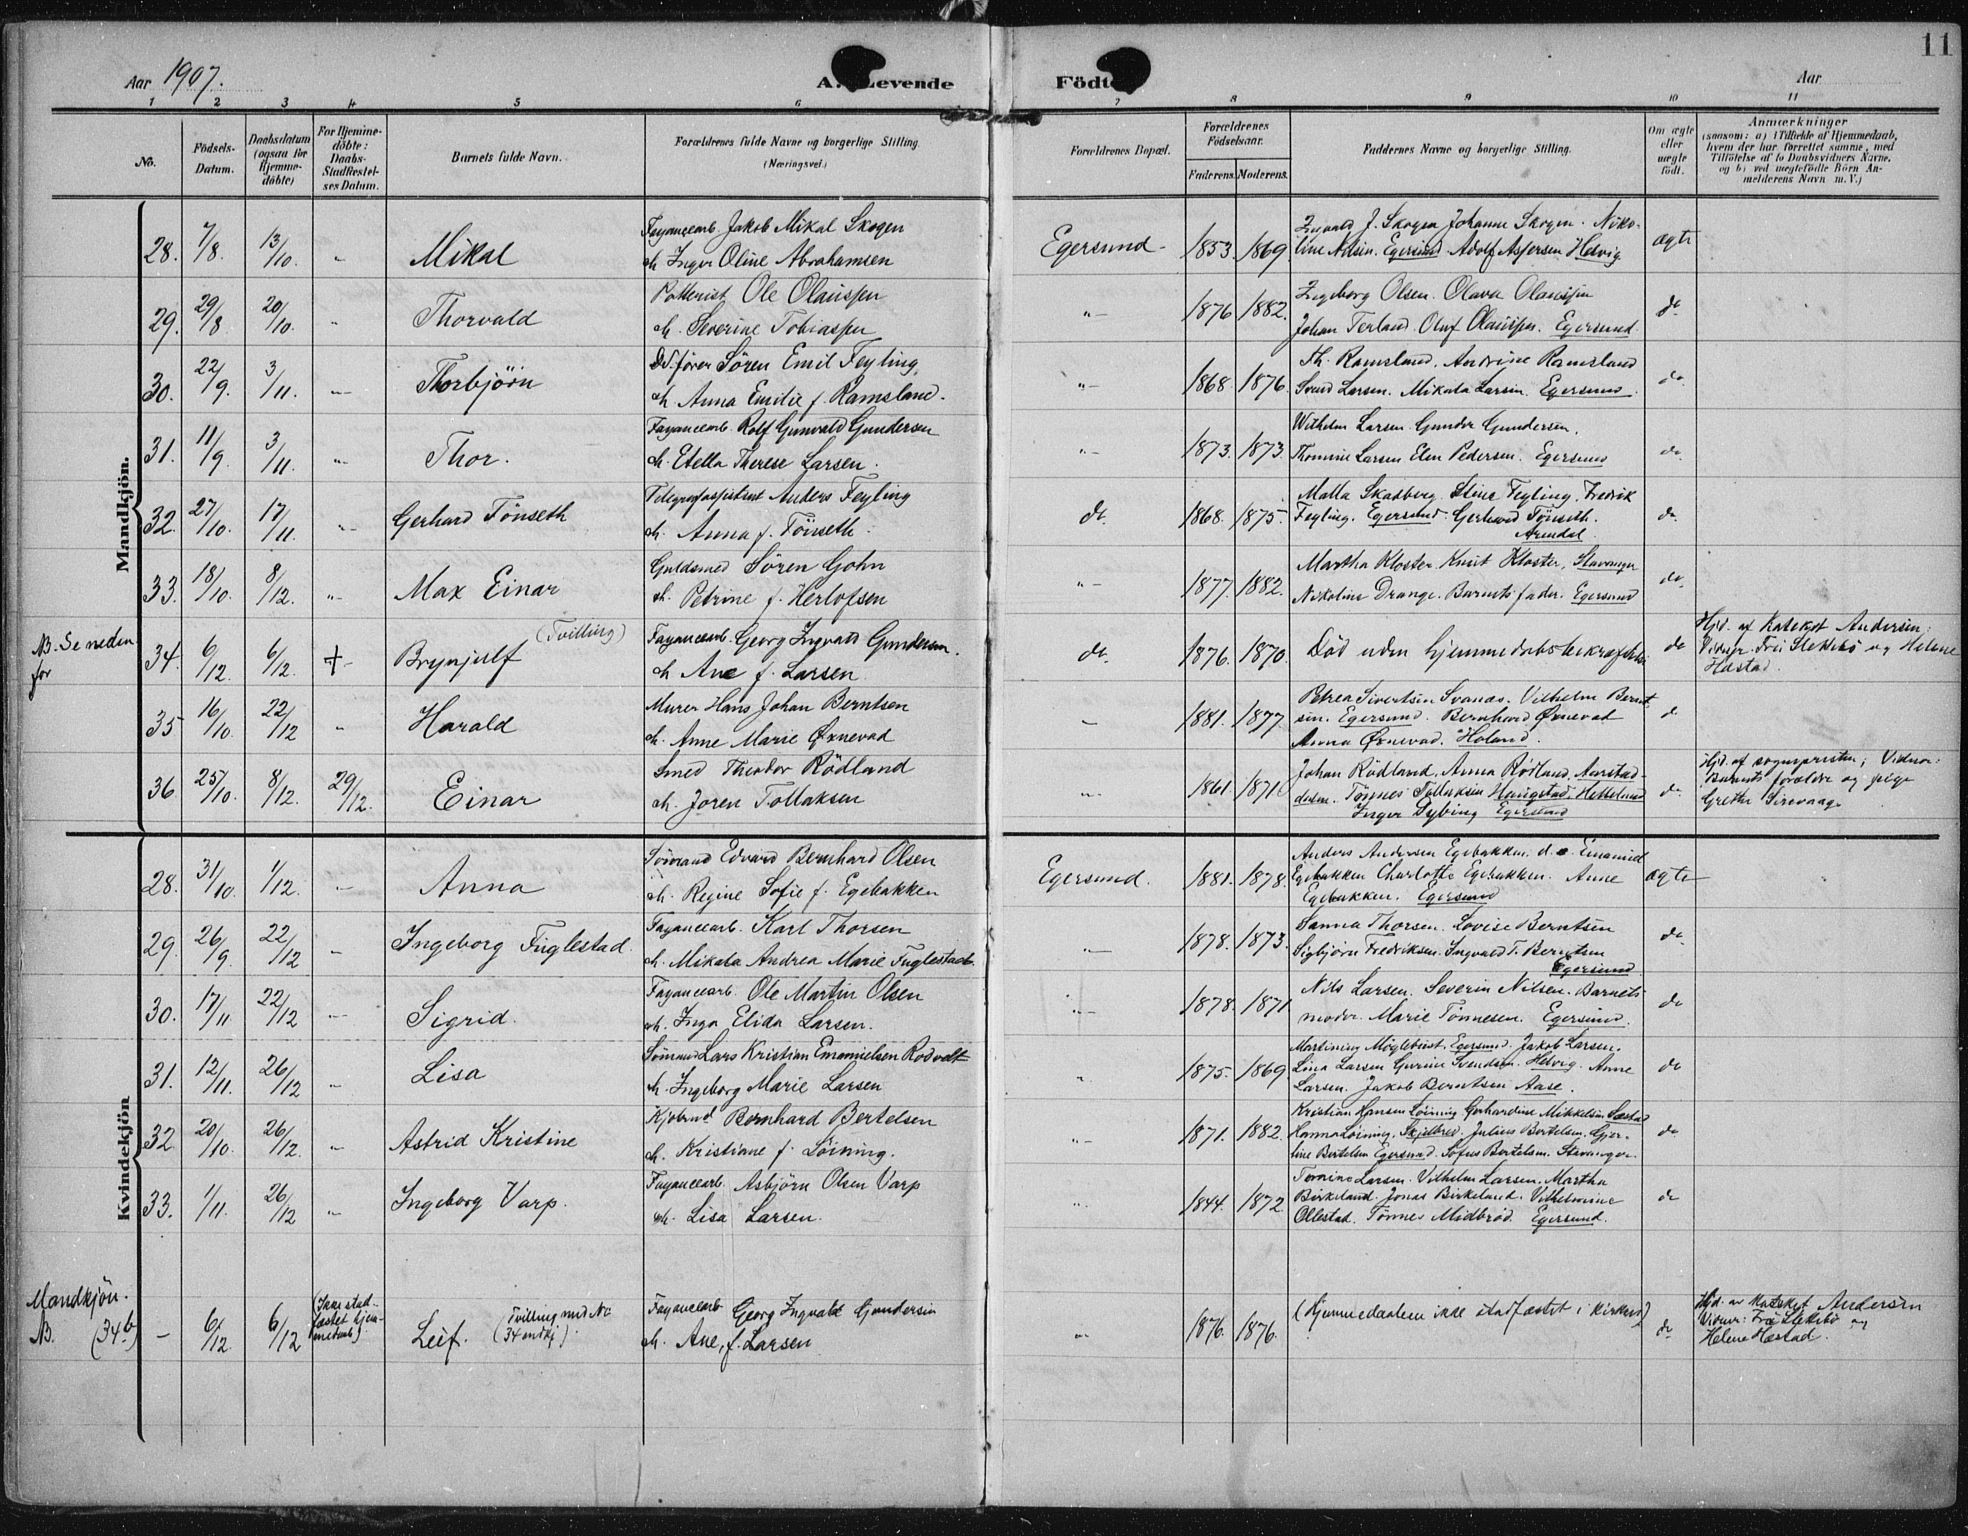 11
Aar 1907.
A. Levende
Födte
Aar
1 2 3 4 5 6 7 8 9 10 11
No.
Födsels-
Datum.
Daabsdatum
(ogsaa for
Hjemme-
döbte)
For Hjemme-
döbte:
Daabs-
Stadfæstel-
ses Datum.
Barnets fulde Navn.
Forældrenes fulde Navne og borgerlige Stilling
(Næringsvei.)
Forældrenes Bopæl.
Forældrenes
Födselsaar.
Faderens. Moderens.
Faddernes Navne og borgerlige Stilling.
Om ægte
eller
uægte
födt.
Anmærkninger
(saasom: a) i Tilfælde af Hjemmedaab,
hvem der har forrettet samme, med
Tilföielse af to Daabsvidners Navne,
og b) ved uægtefödte Börn An-
melderens Navn m. V.)
Mandkjön.
28. 7/8 13/10 " Mikal
Fayancearb. Jakob Mikal Skogen
h. Inger Oline Abrahamsen
Egersund 1853. 1869.
Ingvald J. Skogen Johanne Skogen. Niko-
line Nilsen. Egersund Adolf Asjersen Helvig
ægte
29. 29/8 20/10 " Thorvald
Potterist Ole Olaussen
h. Severine Tobiassen
"– 1876 1882.
Ingeborg Olsen. Olava Olaussen
Johan Terland. Oluf Olaussen. Egersund.
do
30. 22/9 3/11. "– Thorbjörn
DS. förer Sören Emil Feyling,
h. Anna Emilie f. Ramsland.
"– 1868 1876.
Th. Ramsland, Andrine Ramsland
Svend Larsen. Mikala Larsen. Egersund.
do.
31. 11/9 3/11 " Thor.
Fayancearb. Rolf Gunvald Gundersen
h. Etella Therese Larsen.
"– 1873. 1873.
Wilhelm Larsen Gunder Gundersen.
Thomine Larsen Elen Pedersen. Egersund
do.
32. 27/10 17/11 " Gerhard Tönseth
Telegrafassistent Anders Feyling
h. Anna f. Tönseth.
do. 1868. 1875.
Malla Skadberg. Stine Feyling. Fredrik
Feyling. Egersund. Gerhard Tönseth.
Arendal.
do.
33. 18/10 8/12. " Max Einar
Guldsmed Sören Gjohn
h. Petrine f. Herlofsen
"– 1877. 1882.
Martha Kloster. Knut Kloster, Stavanger
Nikoline Drange. Barnets fader. Egersund
do.
NB. Se neden
for
34. 6/12 6/12. + – Brynjulf (Tvilling)
Fayancearb. Georg Ingvald Gundersen.
h Ane f. Larsen
do. 1876. 1870.
Död uden hjemmedabsbekræftelse
do
Hjd. af Kateket Andersen;
Vidner. Frü Slettebö og Helene
Hæstad.
35 16/10. 22/12 " Harald
Murer Hans Johan Berntsen
h. Anne Marie Øxnevad
" 1881. 1877
Petrea Sivertsen Svanæs. Vilhelm Bernt-
sen. Egersund. Bernhard Øxnevad
Anna Øxnevad. Høland.
d
36. 25/10. 8/12. 29/12. Einar
Smed Theodor Rödland
h. Joren Tollaksen
"– 1861. 1871.
Johan Rödland. Anna Rödland, Aarstad-
dalen. Tönnes Tollaksen Haugstad, Helleland
Inger Dybing Egersund
do.
Hjd. af sognepresten; Vidner:
Barnets forældre og pige
Grethe Sirevaag.
Kvindekjön
28. 31/10. 1/12. " Anna
Sömand Edvard Bernhard Olsen
h. Regine Sofie f. Egebakken
Egersund. 1881. 1878.
Anders Andersen Egebakken. d. e. Emanuel
Egebakken Charlotte Egebakken. Anne
Egebakken. Egersund
ægte
29. 26/9 22/12 " Ingeborg Fuglestad.
Fayancearb. Karl Thorsen
h. Mikala Andrea Marie Fuglestad.
"– 1878. 1873.
Sanna Thorsen. Lovise Berntsen
Sigbjörn Fredriksen. Ingvald T. Berntsen
Egersund
do
30. 17/11 22/12 " Sigrid.
Fayancearb. Ole Martin Olsen
h. Inga Elida Larsen.
"– 1878. 1871.
Nils Larsen. Severin Nilsen. Barnets
moder. Marie Tönnesen. Egersund.
do
31. 12/11. 26/12 " Lisa
Sömand Lars Kristian Emanielsen Rodvelt
h Ingeborg Marie Larsen
" 1875. 1869
Martining Möglebust. Egersund. Jakob Larsen.
Lina Larsen Gurine Svendsen. Helvig. Anne
Larsen. Jakob Berntsen Aase.
do
32. 20/10 26/12. " Astrid Kristine
Kjöbmd Bernhard Bertelsen
h. Kristiane f. Löining.
"– 1871. 1882.
Kristian Hansen Löining Gerhardine Mikkelsen Sæstad
Hanna Löining. Skjelbred. Julius Bertelsen. Gjer-
tine Bertelsen Egersund. Sofus Bertelsen. Stavanger.
do
33. 1/11. 26/12 " Ingeborg Varp.
Fayancearb. Asbjörn Olsen Varp
h. Lisa Larsen.
" 1844. 1872
Tomine Larsen. Vilhelm Larsen. Martha
Birkeland. Jonas Birkeland. Vilhelmine
Ollestad. Tönnes Midbröd. Egersund.
do
Mandkjön.
NB. (34b) – 6/12 6/12
(Ikke stad-
fæstet hjem-
medaab)
Leif. (Tvilling med No
34 mdkj)
Fayancearb Georg Ingvald Gundersen
h. Ane, f. Larsen
"– 1876. 1876.
(Hjemmedaaben ikke stadfæstet i kirken)
do
Hjd. av Kateket Andersen
Vidner: Frü Slettebö og
Helene Hæstad.